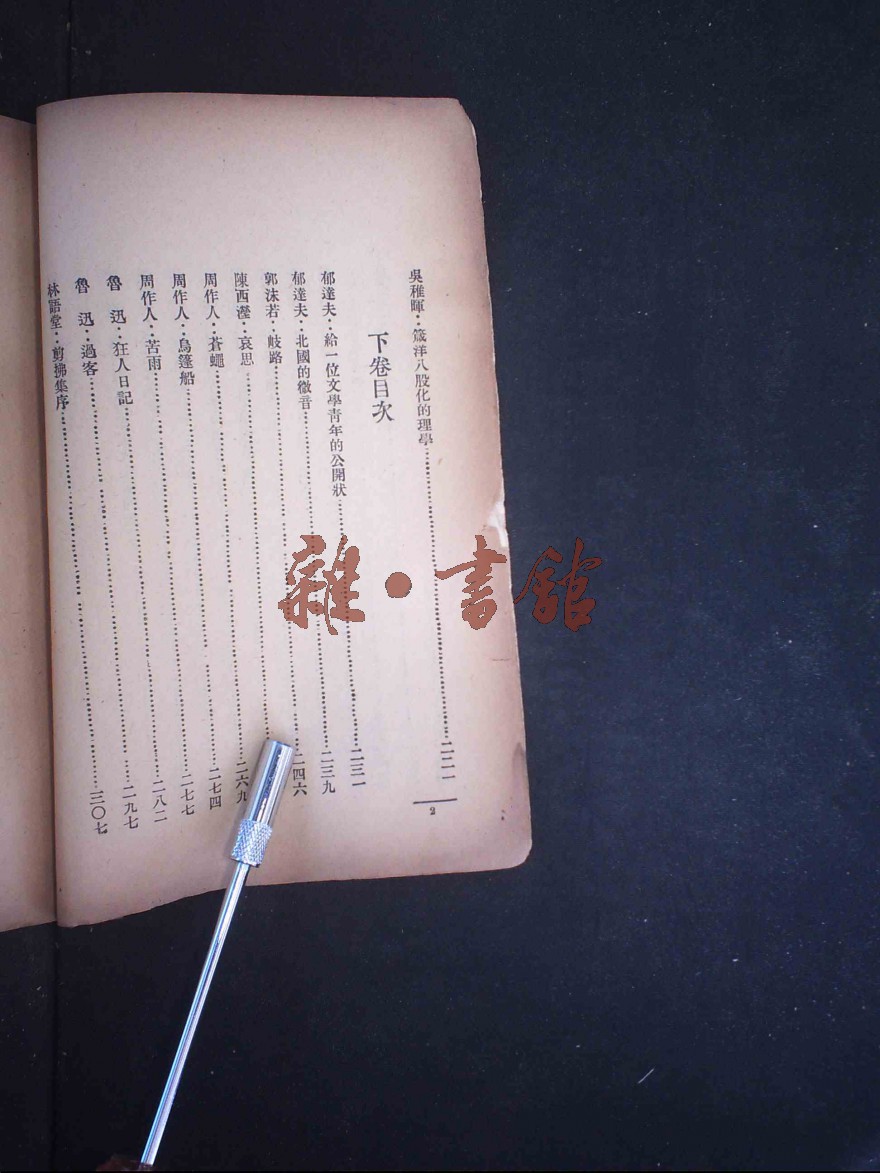 吳稚暉：箴洋八股化的理學……二二一
下卷目次
郁達夫：給一位文學青年的公開狀……二三一
郁達夫：北國的微音……二三九
郭沫若：岐路……二四六
陳西瀅：哀思……二六九
周作人：蒼蠅……二七四
周作人：烏篷船……二七七
周作人：苦雨……二八二
魯迅：狂人日記……二九七
魯迅：過客……三〇七
林語堂：剪拂集序
2
雜·書館